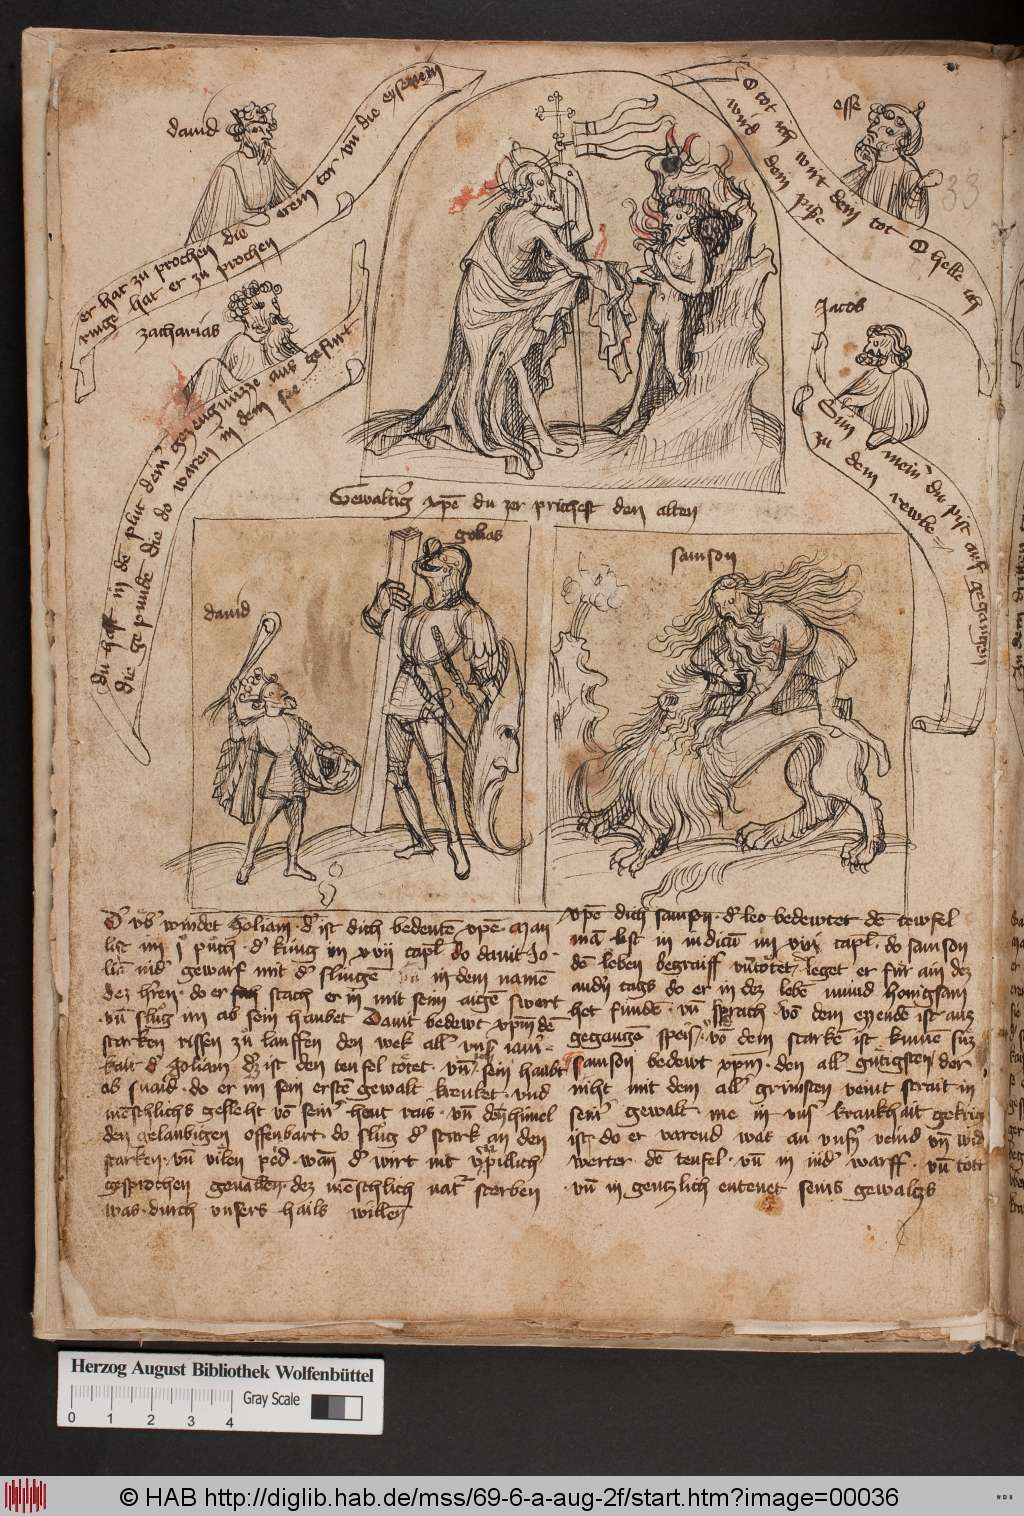 dauid
er hat zu prochen die erein tor vn̄ die eyserein
ringe hat er zu prochen
zacharias
du hast in dē plut dein̄ gezeugnizze aus gefurt
die ge punde die do waren in dem see
O tot ich wirt dein tot O helle ich
wird dein pisse
osse
33
Jacob
Sun mein du pist auf gegangen
zu dem rewbe
Gewaltig xpē du zer prichest den alten
dauid
golias
samson
Dˢ vbˢ windet Goliam · dˢ ist dich bedeutē xpē · Man
list im j puch · dˢ kunig im xvij capl do dauit Go-
liā nidˢ gewarf mit dˢ slingē in dem namē
dez hˢren · do er stach er in mit seim aigē swert
vn̄ slug im ab sein haubet Dauit bedewt xpm̄ dē
starken rissen zu lauffen den wek allˢ vnsˢ iamˢ-
kait dˢ Goliam dz ist den teufel tötet · vn̄ sein haubt
ab snaid · do er im sein erstē gewalt krenket · vnd
mēschlichs geslecht vō seinˢ hant · vn̄ den himel
den gelaubigen offenbart do slug dˢ stark an den
starken · vn̄ vilen · wan̄ dˢ wirt nit
gesprochen geuallen · dez mēschlich natˢ storben
was · durch vnsers hails willen
xpē dich samson · dˢ leo bedewtet dē tewfel
mā list in iudicū im xiiij capl · do samson
dē leben begraiff vn̄ totet · leget er fur ain dez
andn̄ tags do er in dez lebē mund honigsam
het fundē · vn̄ sprach · vō dem ezzendē ist auz
gegangē speis · vō dem starkē ist kumē suz
samson bedewt xpm̄ · den allˢ gutigsten der
niht mit dem allˢ grimsten veint strait in
seinˢ gewalt me in vnsˢ krankhait gekrig
ist · do er varend was an vnsn̄ veind vn̄ wid
werter dē teufel · vn̄ in nidˢ warff · vn̄ tott
vn̄ in gentzlich entenet seins gewaltz
Herzog August Bibliothek Wolfenbüttel
Gray Scale
0 1 2 3 4
© HAB http://diglib.hab.de/mss/69-6-a-aug-2f/start.htm?image=00036